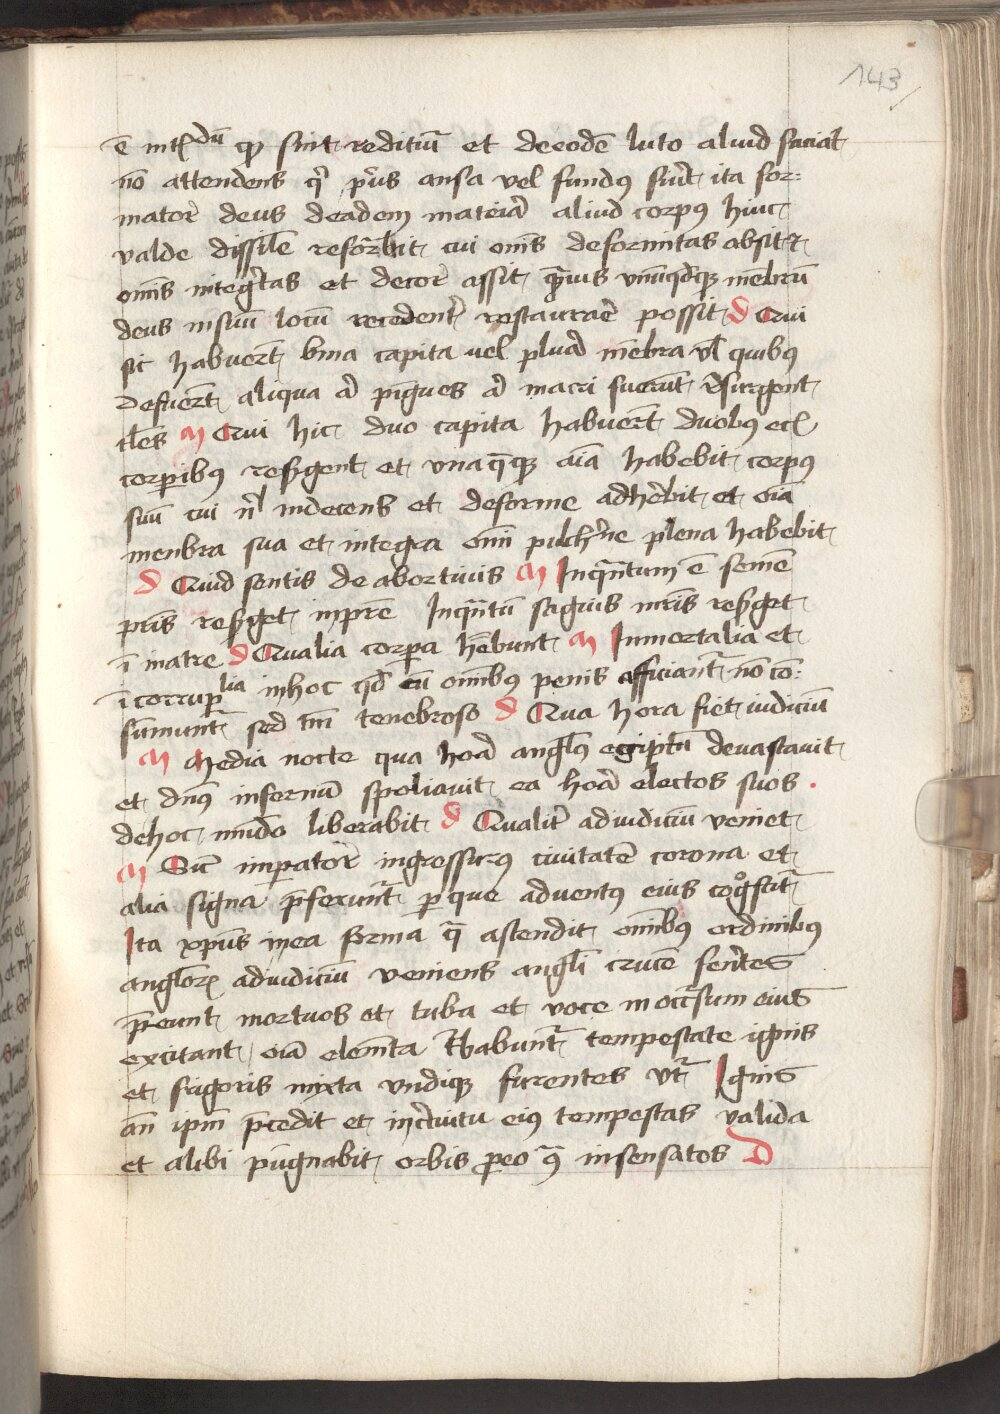 143
ē intꝭdū ꝙ sint reditiuā et deeodē luto aliud faciat
nō attendens qͥ pͥus ansa vel fundꝰ fuīt ita for:
mator deus deadem materiā aliud corpꝰ hiuc
valde dissilē reformabit cui oms deformitas absit ⁊
omīs integͥtas et decor assit pͥus vnūqͦdqꝫ mēbrū
deus insuū locū recedentͥ restaurare possit d Qui
sic habuerūt bina capita vel plura mēbra vl̄ quibꝰ
defuerūt aliqua aͩ pīgues aͩ macri fuerūt resurgent
tles M Qui hic duo capita habuerūt duobꝰ
corporibꝰ resurgent et vnaqͣqꝫ aīa habebit corpꝰ
suū cui nͥl indecens et deforme adherebit et oīa
menbra sua et integra omī pulchͥne plena habebit
d Quid sentis de abortiuis M Inqͣntum ē semē
pͥris resurget inpͣtre Inqͣntū sāguis mͥris resurget
ī matre d Qualia corpa hēbunt M Inmortalia et
ī corrupͭlia inhoc qd̄ cū omībꝰ penis afficiantͬ nō cō:
sūmuntͬ sed tm̄ tenebroso d Qua hora fiet iudiciū
M Media nocte qua horā anglꝰ egiptū deuastauit
et dnꝰ infernū spoliauit ea horā electos suos .
dehoc mūdo liberabit d Qualitͬ adiudiciū veniet
M Sic imperator ingressurꝰ ciuitatē corona et
alia signa p̄feruntͬ per que aduentꝰ eius cogͦscitͬ
Ita xp̄us inea forma qͣ ascendit omībꝰ ordinibꝰ
angloꝝ adiudiciū veniens angli crucē ferētes
p̄eunt mortuos et tuba et voce inoccͬsum eius
excitant oīa elemēta tͬbabuntͬ tempestate ignis
et frigoris mixta vndiqꝫ furentes vtͬ Ignis
an̄ ipm̄ p̄cedit et incͬcuitu eiꝰ tempestas valida
et alibi pugnabit orbis pro eo qͣ insensatos D